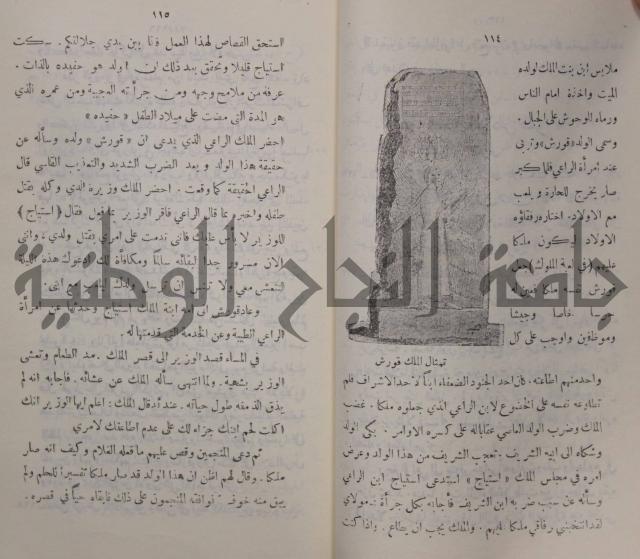 ١١٤
ملابس ابن بنت الملك لولده
الميت واخذه امام الناس
ورماه للوحوش على الجبال.
وسمى الولد «قورش» وتربى
عند امرأة الراعي فلما كبر
صار يخرج للحارة ويلعب
مع الاولاد. اختاره رفقاؤه
الاولاد ليكون ملكا
عليهم (في لعبة الملوك)
قورش نفسه ملكا
حرسا خاصا وجيشا
وموظفين واوجب على كل
تمثال الملك قورش
واحد منهم اطاعته. فكان احد الجنود الضعفاء ابناً لاحد الاشراف فلم
تطاوعه نفسه على الخضوع لابن الراعي الذي جعلوه ملكا. غضب
الملك وضرب الولد العاصي عقابا له على كسره الاوامر. بكى الولد
وشكاه الى ابيه الشريف. تعجب الشريف من هذا الولد وعرض
امره في مجلس الملك «استياج» استدعى استياج ابن الراعي
وسأله عن سبب ضربه ابن الشريف فأجابه بكل جرأة يا مولاي
لقد انتخبني رفاقي ملكا عليهم. والملك يجب ان يطاع. واذا كنت
١١٥
استحق القصاص لهذا العمل فانا بين يدي جلالتكم. سكت
استياج قليلا وتحقق بعد ذلك ان الولد هو حفيده بالذات.
عرفه من ملامح وجهه ومن جرأته العجيبة ومن عمره الذي
هو المدة التي مضت على ميلاد الطفل «حفيده»
احضر الملك الراعي الذي يدعى ان «قورش» ولده وسأله عن
حقيقة هذا الولد وبعد الضرب الشديد والتعذيب القاسي قال
الراعي الحقيقة كما وقعت. احضر الملك وزيره الذي وكله بقتل
طفله واخبره بما قال الراعي فاقر الوزير بما قول فقال (استياج)
للوزير لا بأس عليك فاني ندمت على امري بقتل ولدي، وانني
الآن مسرور جدا لبقائه سالما ومكافأة لك ادعوك هذه الليلة
لتتعشى معي ولا تنسى ان ترسل ولدك ليلعب مع ابني.
وعاد قورش الى امه ابنة الملك استياج وحدثها عن امرأة
الراعي الطيبة وعن الخدمة التي قدمتها له
في المساء قصد الوزير الى قصر الملك. مد الطعام وتعشى
الوزير بشهية. ولما انتهى سأله الملك عن عشائه. فاجابه انه لم
يذق الذ منه طول حياته. عند ذلك قال الملك: اعلم ايها الوزير انك
اكلت لحم ابنك جزاء لك على عدم اطاعتك لامري
ثم دعى المنجمين وقص عليهم ما فعله الغلام وكيف انه صار
ملكا. وقال لهم اظن ان هذا الولد قد صار ملكا تفسيراً للحلم ولم
يبق منه خوف. فوافقه المنجمون على ذلك فابقاه حياً في قصره.
جامعة النجاح الوطنية